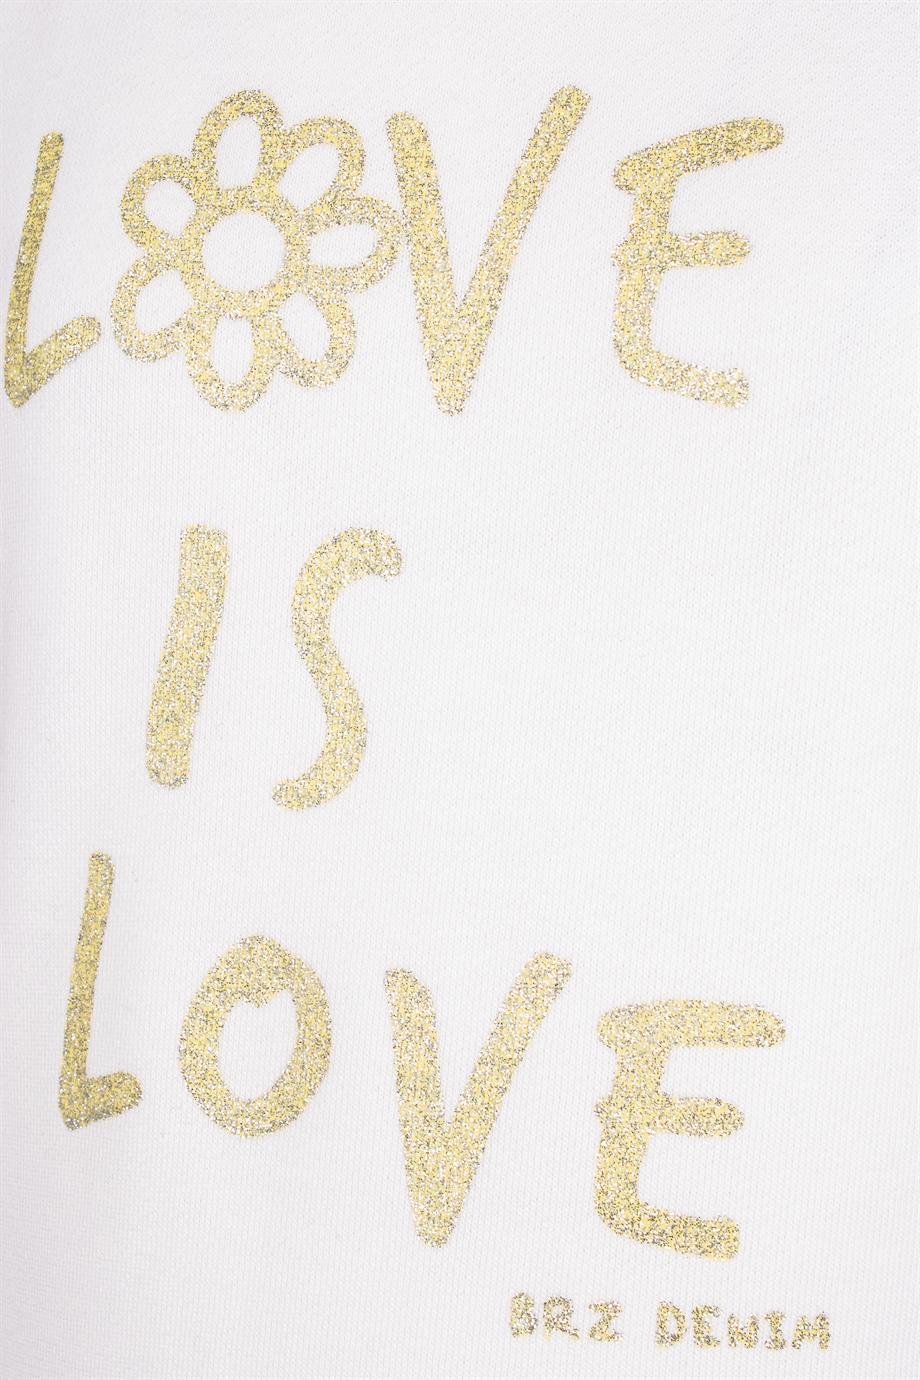 LOVE
IS
LOVE
BRZ DENIM